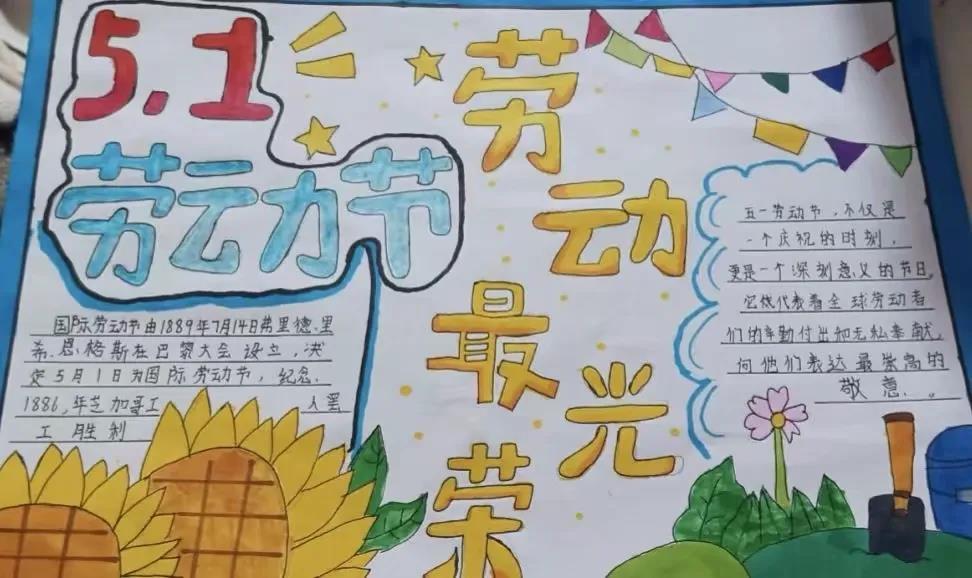 5.1
劳动节
劳动最光荣
国际劳动节由1889年7月14日弗里德里
希.恩格斯在巴黎大会设立,决
定5月1日为国际劳动节,纪念.
1886,年芝加哥工人罢
工胜利
五一劳动节,不仅是
一个庆祝的时刻.
更是一个深刻意义的节日,
它代表着全球劳动者
们的辛勤付出和无私奉献,
向他们表达最崇高的
敬意.。